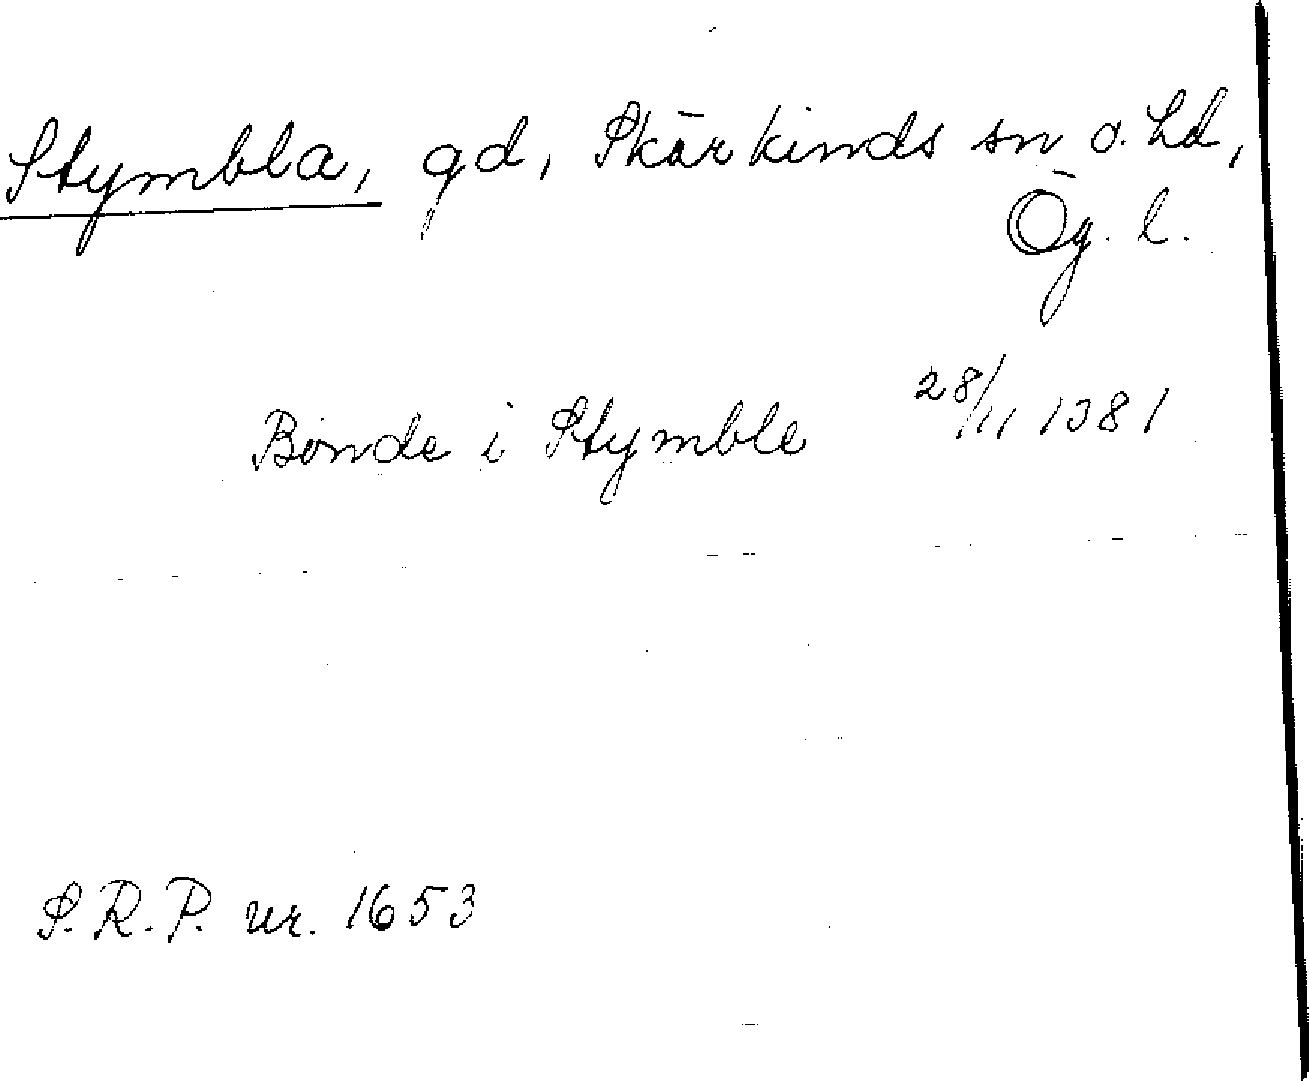 Stymbla, gd, Skärkinds sn o. hd,
Ög. l.
Bonde i Stymble 28/11 1381
S.R.P. nr. 1653